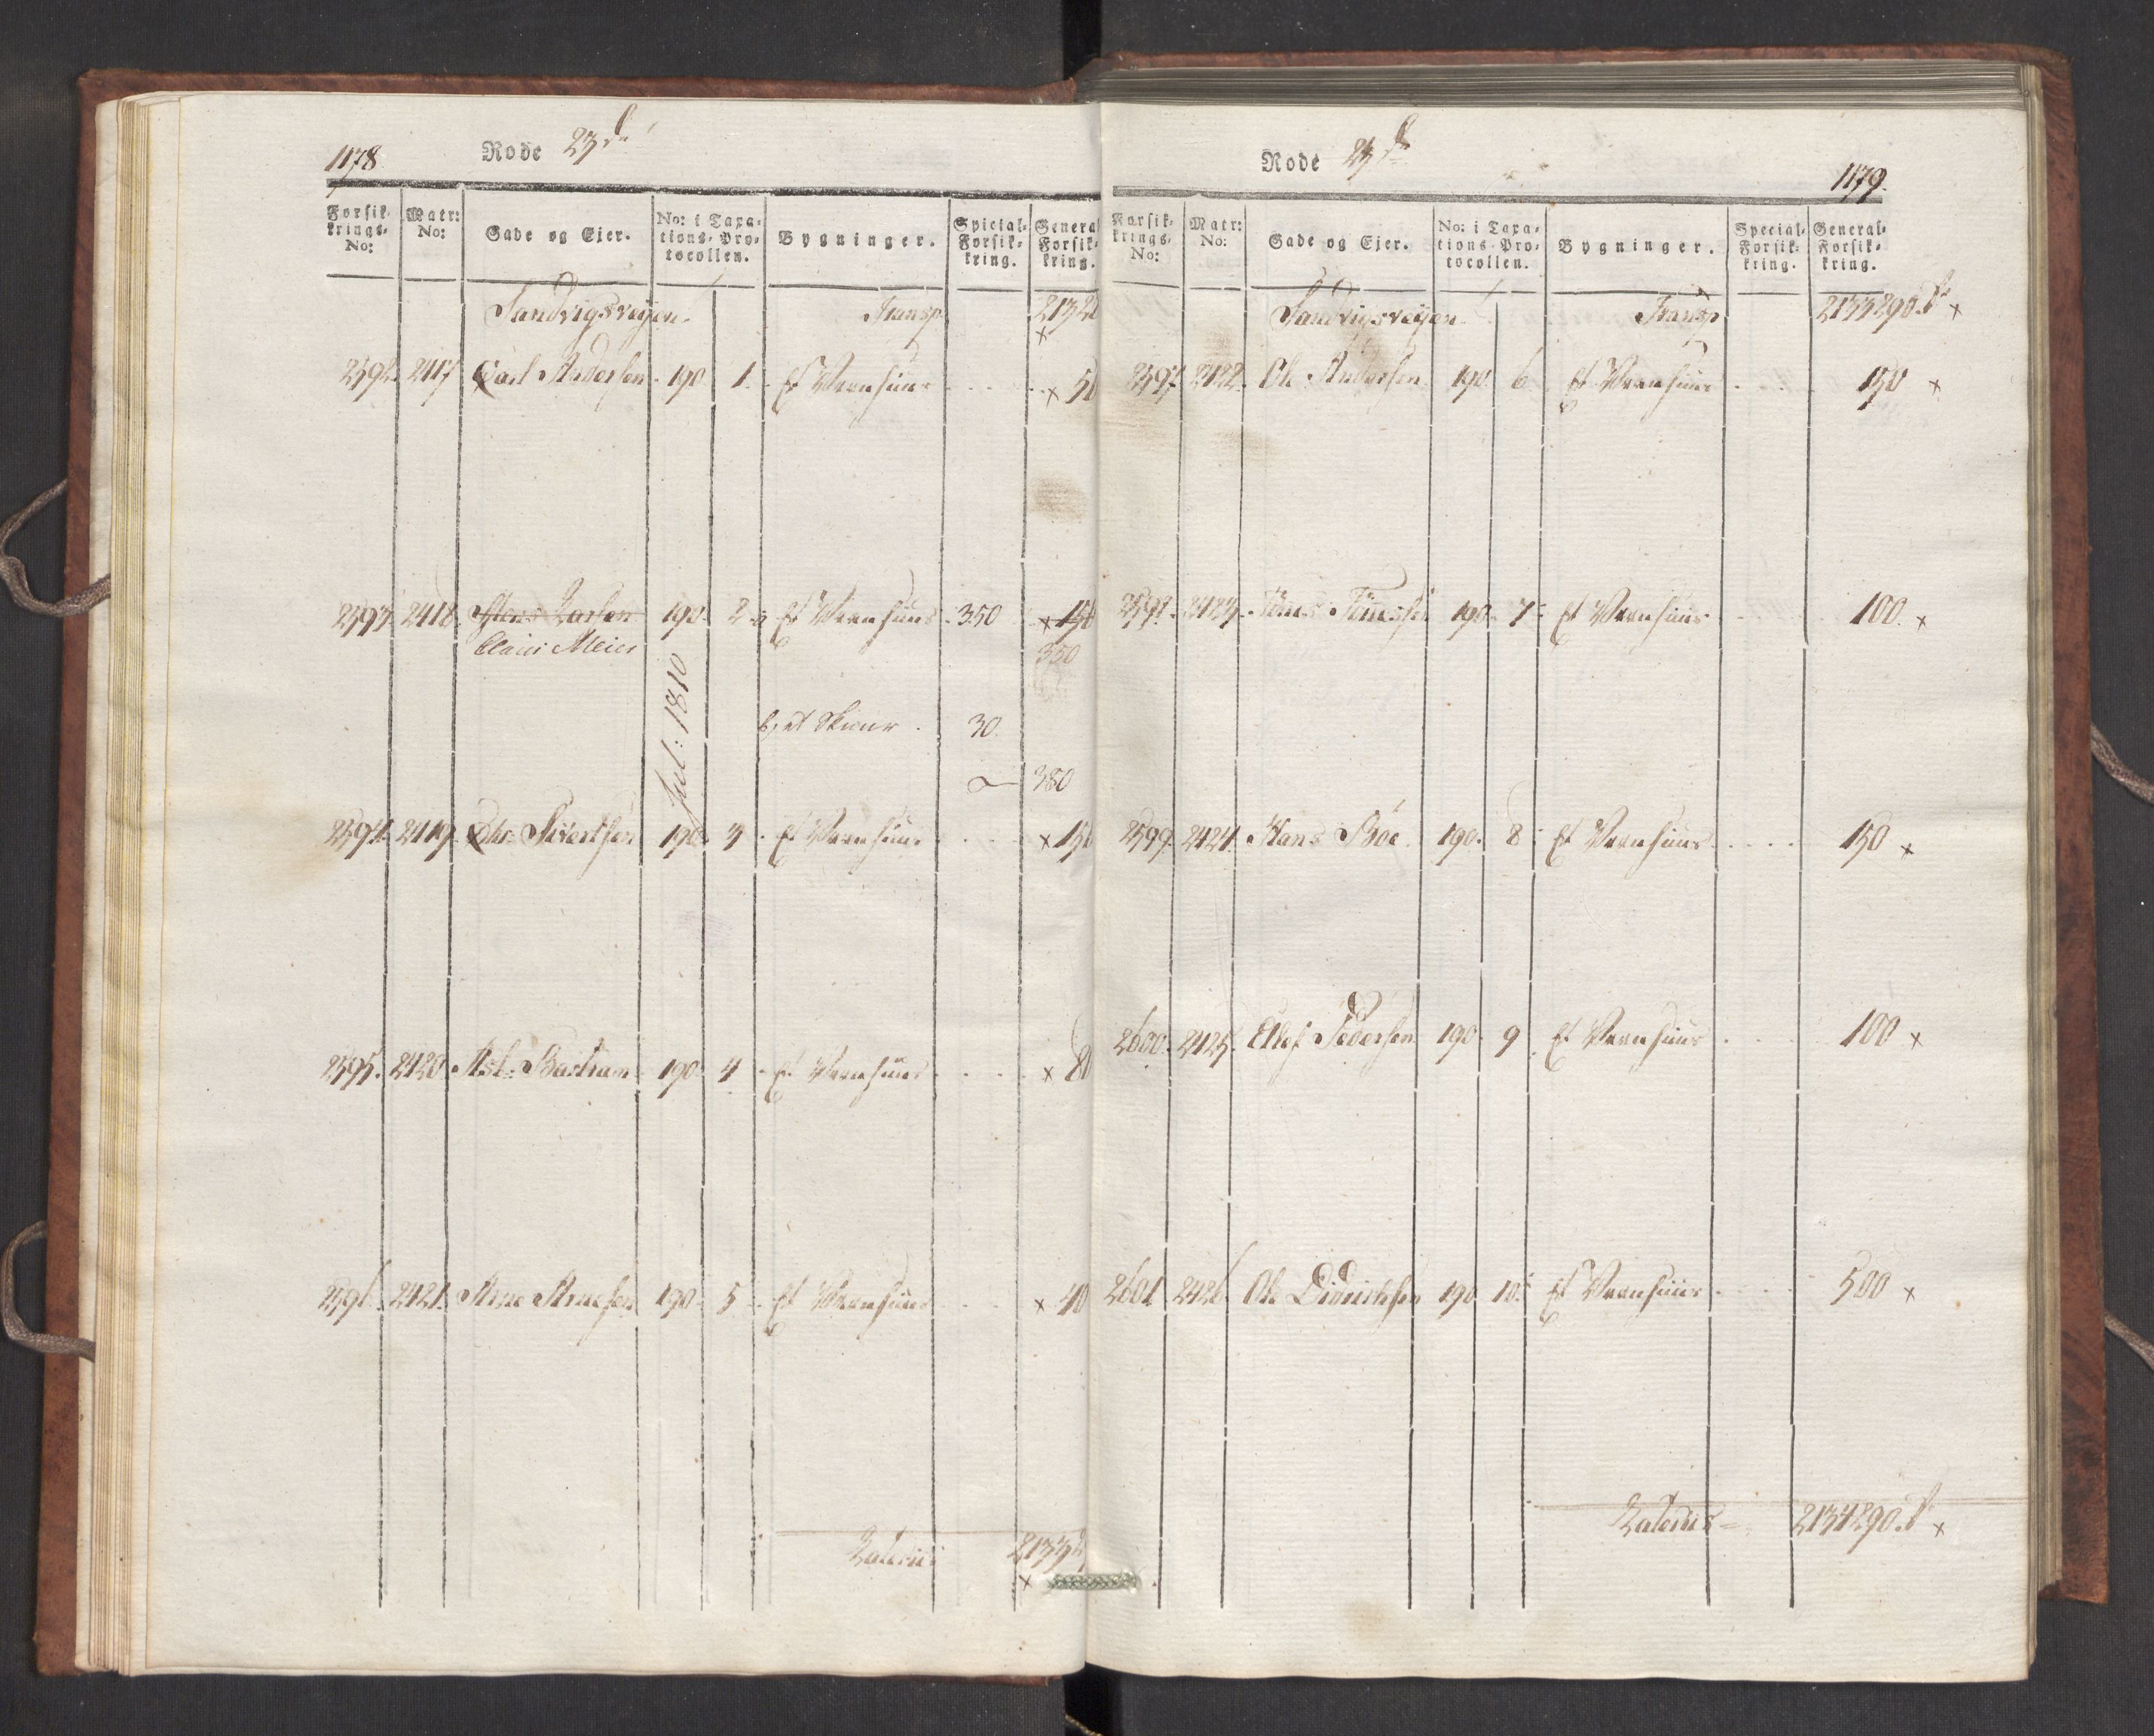 1178
Rode 23de
Forsik-
krings-
No:
Matr:
No:
Gade og Ejer.
No: i Taxa-
tions-Pro-
tocollen.
Bygninger.
Special-
Forsik-
kring.
General
Forsik-
kring.
Sandvigsveyen. Transp
2592. 2417 Carl Andersen. 190 1. Et Vaanhuus x 50
2593. 2418. Hans Larsen 190. 2. a, Et Vaanhuus. 350 x 150
Claus Meier 350
Jul: 1810
b, et Skuur. 30.
380
2594. 2419. Chr: Sivertsen 190. 3. Et Vaanhuus x 150
2595. 2420. Ast: Bastian 190. 4. Et Vaanhuus x 80
2596. 2421. Arne Arnesen 190. 5. Et Vaanhuus x 40
Lateris
x
Rode 23de
1179.
Forsik-
krings-
No:
Matr:
No:
Gade og Ejer.
No: i Taxa-
tions-Pro-
tocollen.
Bygninger.
Special-
Forsik-
kring.
General-
Forsik-
kring.
Sandvigsveyen. Transp 2133290 x
2597. 2422. Ole Andersen 190. 6. Et Vaanhuus 150 x
2598. 2423. Tönnes Tönnessen 190. 7. Et Vaanhuus 100. x
2599. 2424. Hans Böe. 190. 8. Et Vaanhuus 150 x
2600. 2425. Ellef Pedersen 190. 9. Et Vaanhuus 100 x
2601 2426 Ole Didrichsen 190 10. Et Vaanhuus 500 x
Lateris 2134290. x